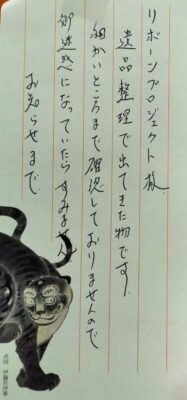 リボーンプロジェクト様
遺品整理で出てきた物です。
細かいところまで確認しておりませんので
御迷惑になっていたらすみません
お知らせまで
虎図 伊藤若冲筆